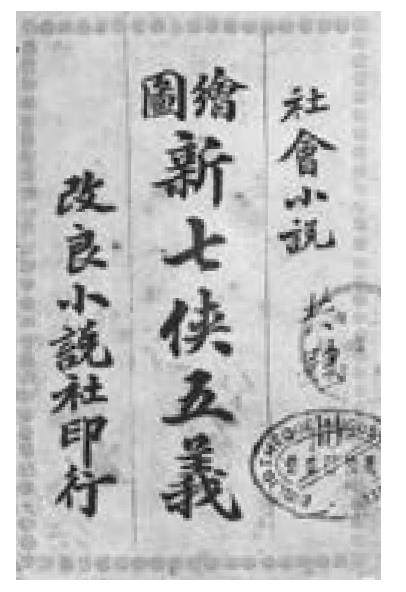 社會小説
繪圖
新七俠五義
改良小説社印行